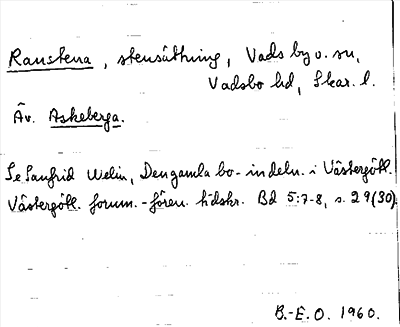 Ranstena, stensättning, Vads by o. sn,
Vadsbo hd, Skar. l.
Äv. Askeberga.
Se Sanfrid Welin, Den gamla bo-indeln. i Västergötl.
Västergötl. fornm.-fören. tidskr. Bd 5:7-8, s. 29(30).
B.-E. O. 1960.